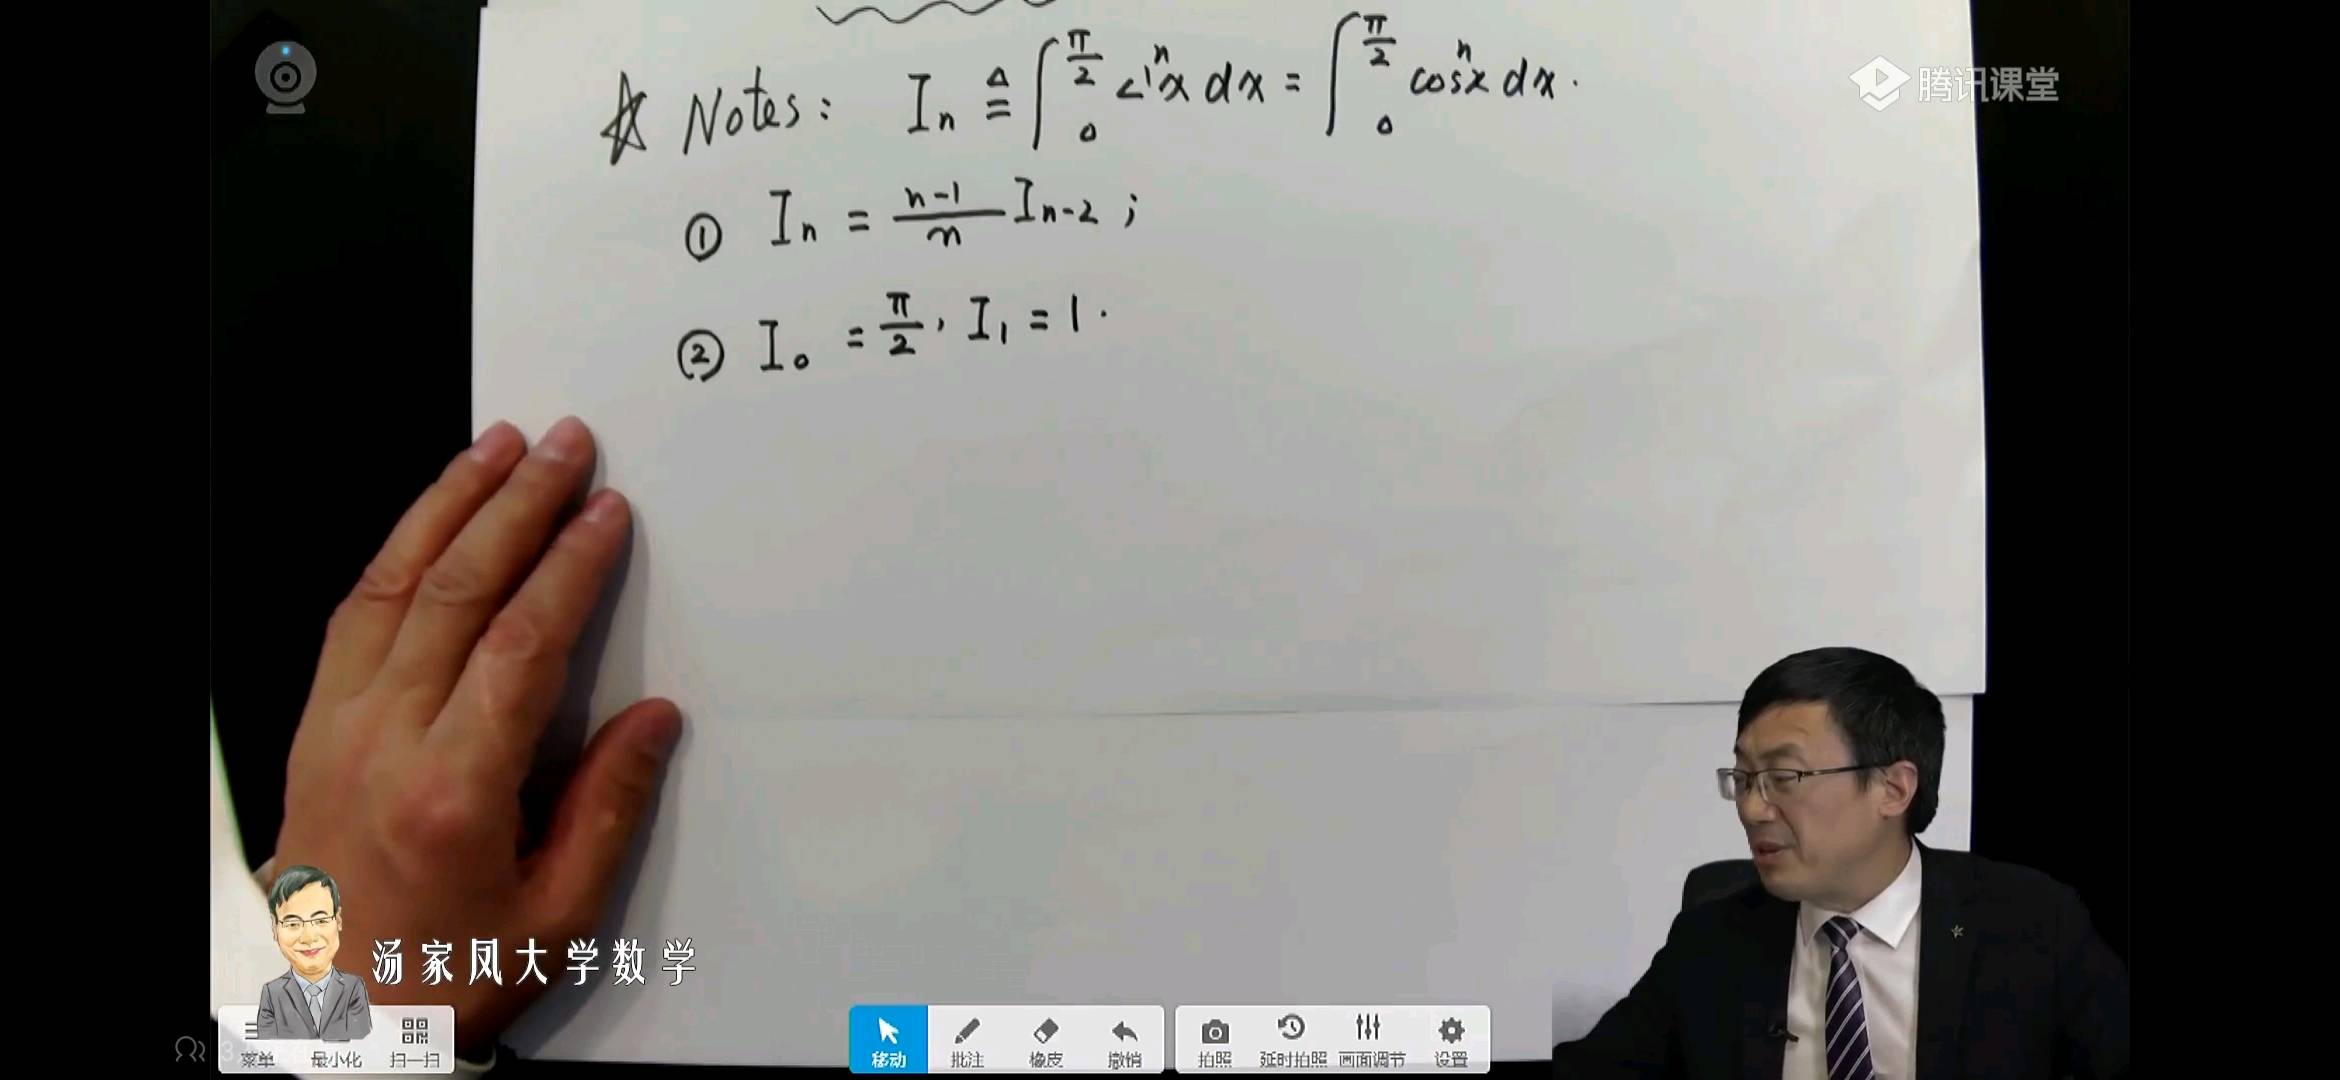 腾讯课堂
☆ Notes: Iₙ ≜ ∫₀^(π/2) sinⁿx dx = ∫₀^(π/2) cosⁿx dx.
① Iₙ = (n-1)/n Iₙ₋₂ ;
② I₀ = π/2, I₁ = 1.
汤家凤大学数学
菜单 最小化 扫一扫 移动 批注 橡皮 撤销 拍照 延时拍照 画面调节 设置